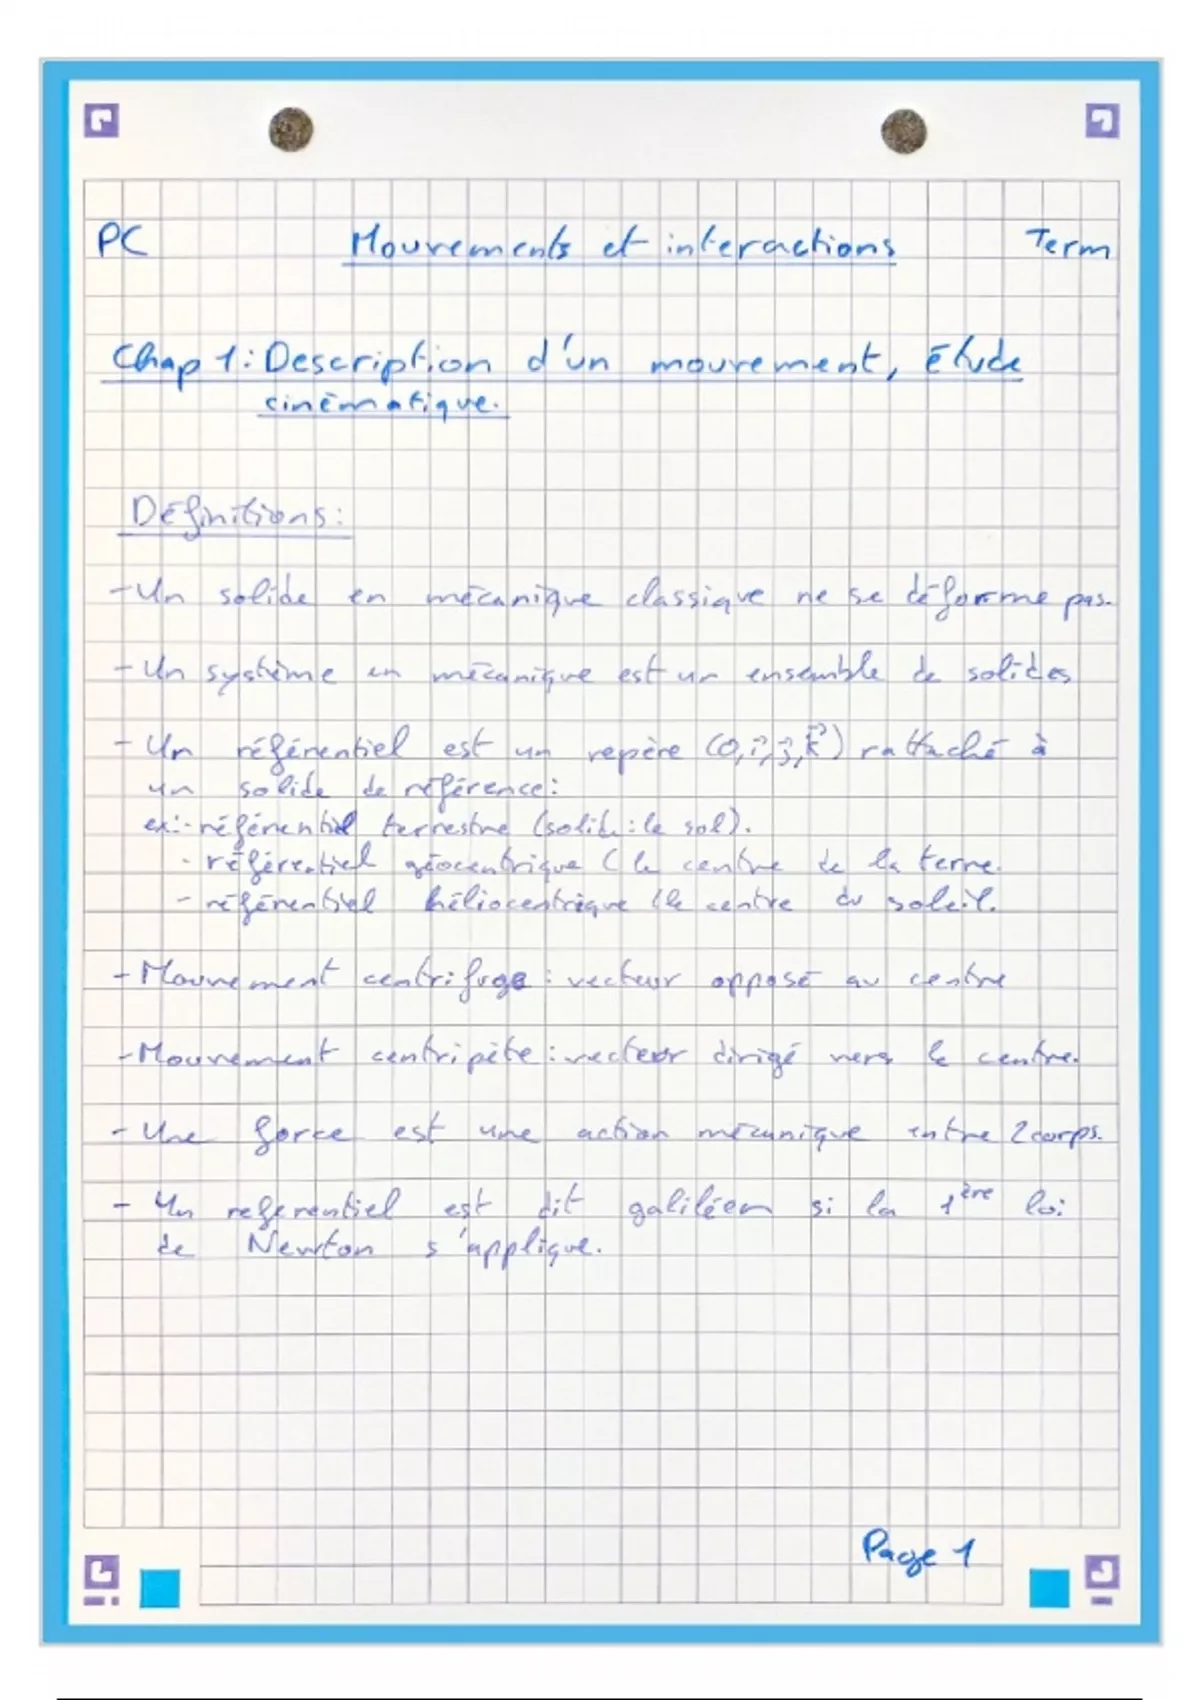 PC Mouvements et interactions Term
Chap 1: Description d'un mouvement, étude
cinématique.
Définitions:
- Un solide en mécanique classique ne se déforme pas.
- Un système en mécanique est un ensemble de solides
- Un référentiel est un repère (O,i⃗,j⃗,k⃗) rattaché à
un solide de référence:
ex:- référentiel terrestre (solide: le sol).
- référentiel géocentrique (le centre de la terre.
- référentiel héliocentrique (le centre du soleil.
- Mouvement centrifuge: vecteur opposé au centre
- Mouvement centripète: vecteur dirigé vers le centre.
- Une force est une action mécanique entre 2 corps.
- Un referentiel est dit galiléen si la 1ère loi
de Newton s'applique.
Page 1